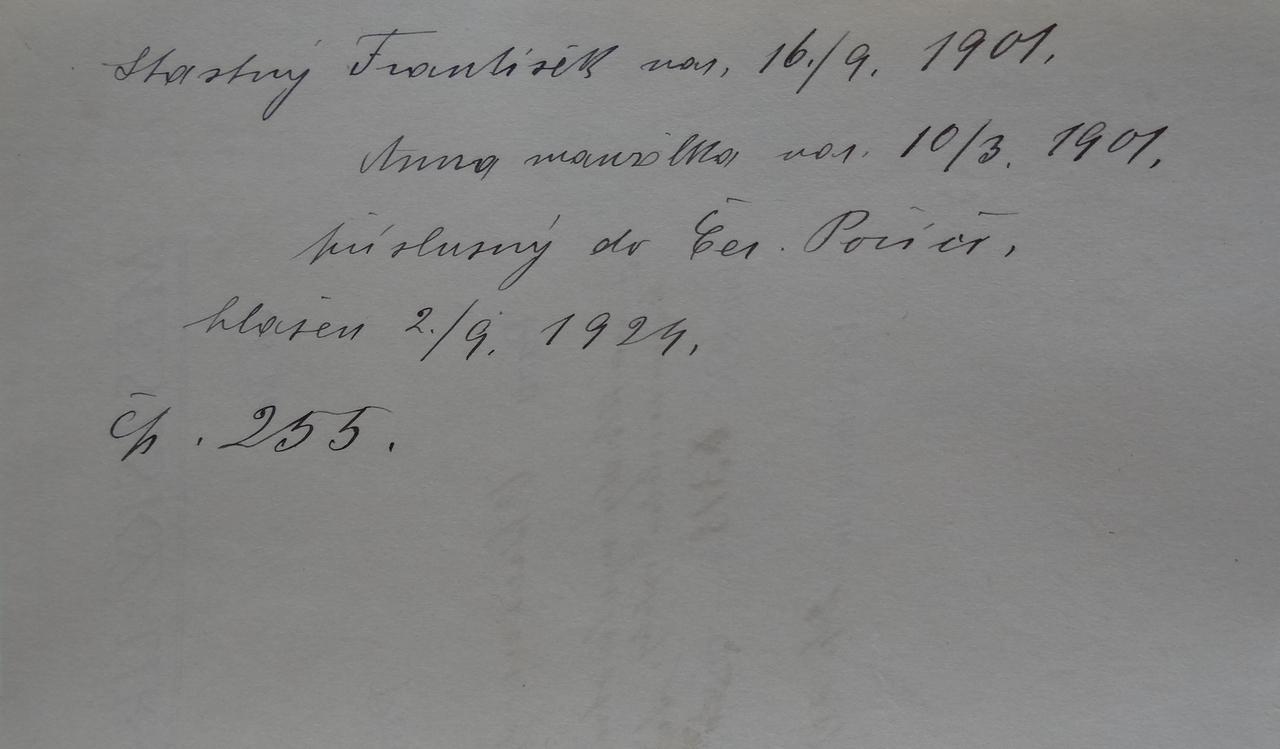 Stastný František nar. 16./9. 1901.
Anna manželka nar. 10/3. 1901.
příslusný do Čer. Poříčí,
hlášen 2./9. 1924.
čp. 255.